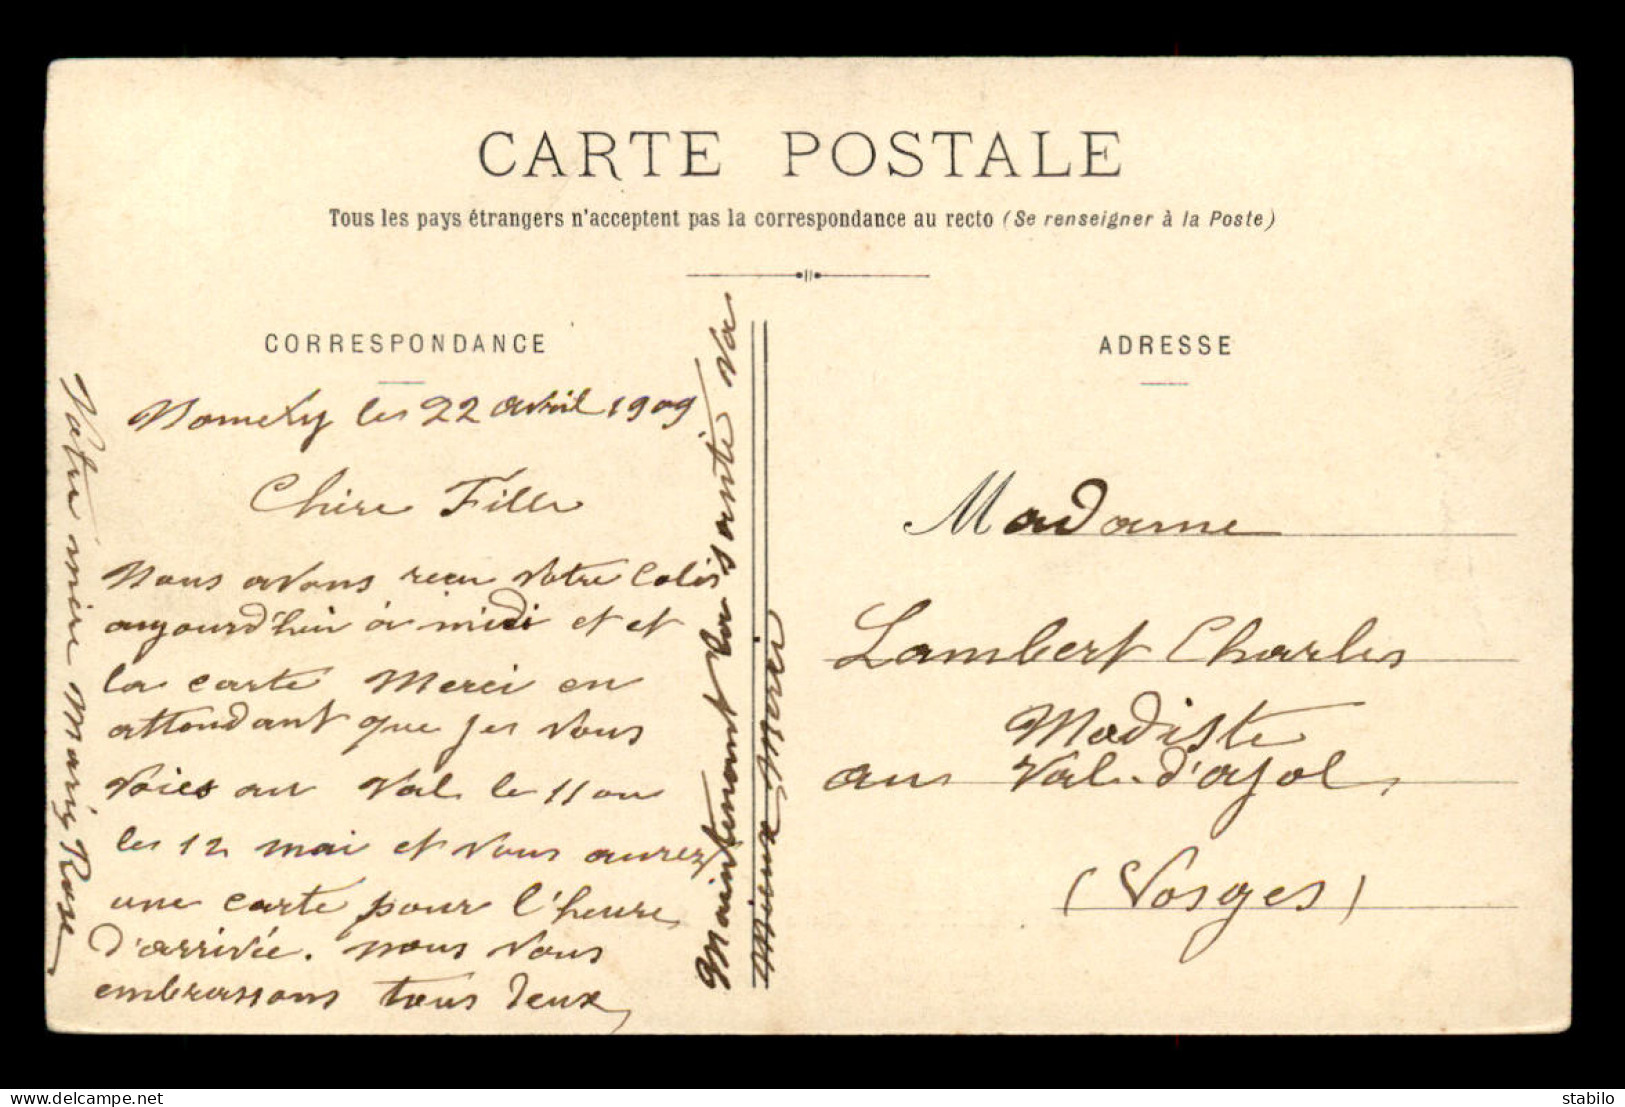 CARTE POSTALE
Tous les pays étrangers n'acceptent pas la correspondance au recto (Se renseigner à la Poste)
CORRESPONDANCE
ADRESSE
Nomexy les 22 avril 1909
Chère Fille
Nous avons reçu Votre Colis
aujourd'hui à midi et et
la carte Merci en
attendant que je Vous
Voies au Val le 11 ou
les 12 mai et Vous aurez
une carte pour l'heure
d'arrivée. nous Vous
embrassons tous deux
Votre mère Marie Rose
Maintenant la santé va
Mieux Merci
Madame
Lambert Charles
Modiste
au Val-d'ajol,
(Vosges)
delcampe.net
stabilo